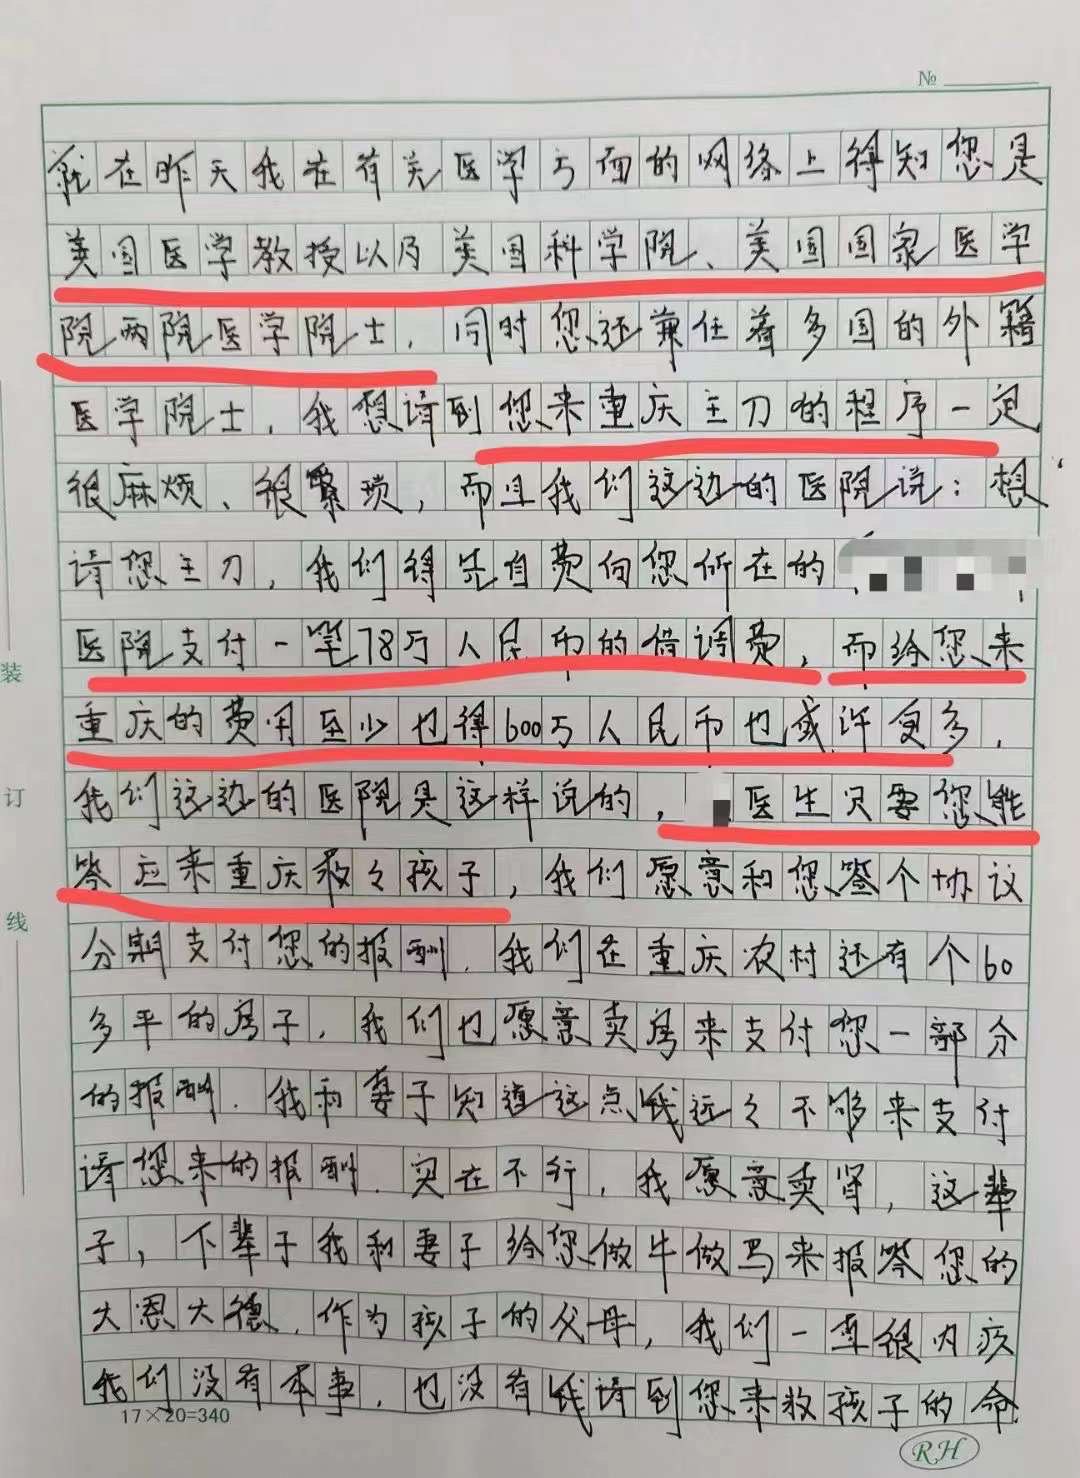 №
就在昨天我在有关医学方面的网络上得知您是
美国医学教授以及美国科学院、美国国家医学
院两院医学院士，同时您还兼任着多国的外籍
医学院士，我想请到您来重庆主刀的程序一定
很麻烦、很繁琐，而且我们这边的医院说：想
请您主刀，我们得先自费向您所在的
医院支付一笔78万人民币的借调费，而给您来
重庆的费用至少也得600万人民币也或许更多，
我们这边的医院是这样说的，医生只要您能
答应来重庆救救孩子，我们愿意和您签个协议
分期支付您的报酬．我们在重庆农村还有个60
多平的房子，我们也愿意卖房来支付您一部分
的报酬．我和妻子知道这点钱远々不够来支付
请您来的报酬．实在不行，我愿意卖肾，这辈
子，下辈子我和妻子给您做牛做马来报答您的
大恩大德．作为孩子的父母，我们一直很内疚
我们没有本事，也没有钱请到您来救孩子的命．
17×20=340
RH
装
订
线